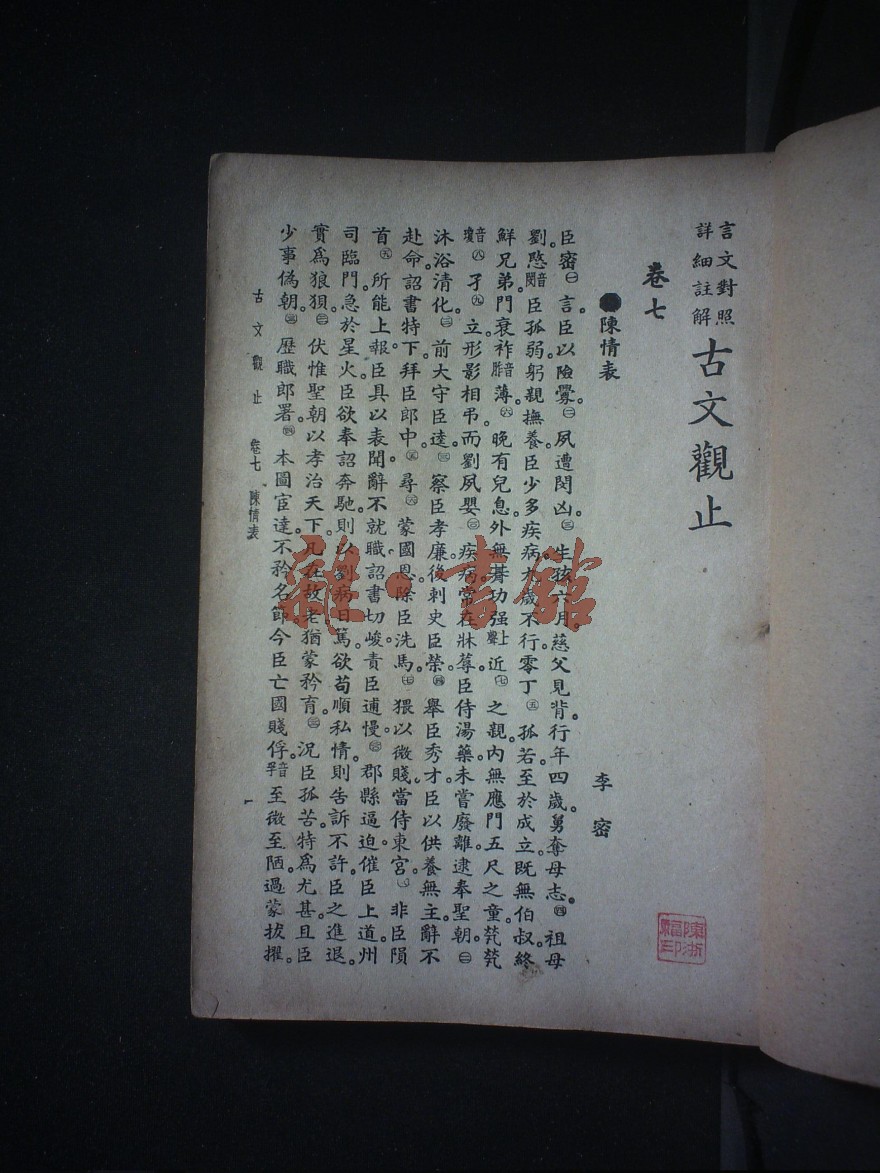 言文對照
詳細註解
古文觀止
卷七
●陳情表
李密
臣密㊀言。臣以險釁。㊁夙遭閔凶。㊂生孩六月。慈父見背。行年四歲。舅奪母志。㊃祖母
劉愍音閔臣孤弱。躬親撫養。臣少多疾病。九歲不行。零丁㊄孤若。至於成立。既無伯叔。終
鮮兄弟。門衰祚音胙薄。㊅晚有兒息。外無朞功强上聲近㊆之親。內無應門五尺之童。煢煢
音瓊㊇孑㊈立。形影相弔。而劉夙嬰㊉疾病。常在牀蓐。臣侍湯藥。未嘗廢離。逮奉聖朝。
沐浴清化。前大守臣逵。察臣孝廉。後刺史臣榮。舉臣秀才。臣以供養無主。辭不
赴命。詔書特下。拜臣郎中。尋蒙國恩。除臣洗馬。猥以微賤。當侍東宮。非臣隕
首所能上報。臣具以表聞。辭不就職。詔書切峻。責臣逋慢。郡縣逼迫。催臣上道。州
司臨門。急於星火。臣欲奉詔奔馳。則以劉病日篤。欲苟順私情。則告訴不許。臣之進退。
實爲狼狽。伏惟聖朝以孝治天下。凡在故老。猶蒙矜育。況臣孤苦。特爲尤甚。且臣
少事偽朝。歷職郎署。本圖宦達。不矜名節。今臣亡國賤俘。音孚至微至陋。過蒙拔擢。
古文觀止 卷七 陳情表
一
雜·書館